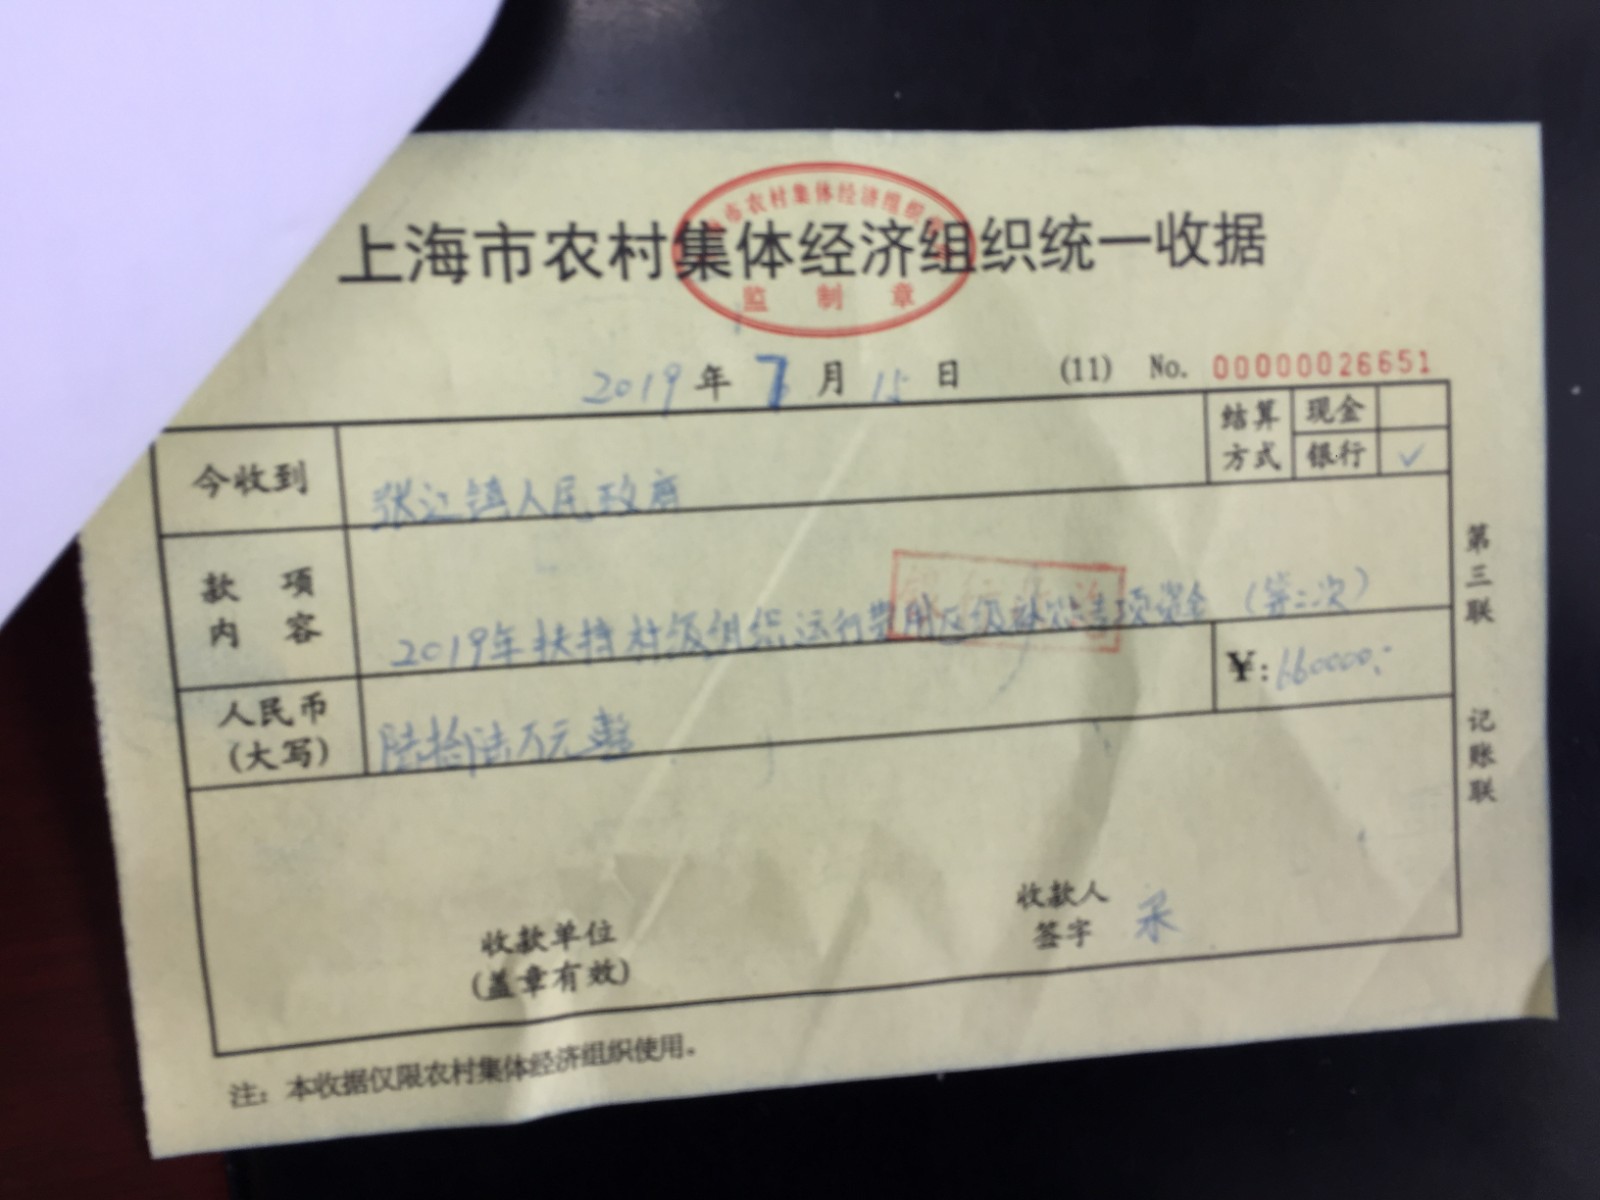 上海市农村集体经济组织统一收据
市农村集体经济组织
监制章
2019年7月15日 (11) No. 00000026651
今收到 张江镇人民政府
结算方式 现金 银行 ✓
款项内容 2019年扶持村级组织运行费用区级补贴专项资金(第二次)
人民币(大写) 陆拾陆万元整
¥:660000:-
收款单位
(盖章有效)
收款人
签字
第三联 记账联
注:本收据仅限农村集体经济组织使用。